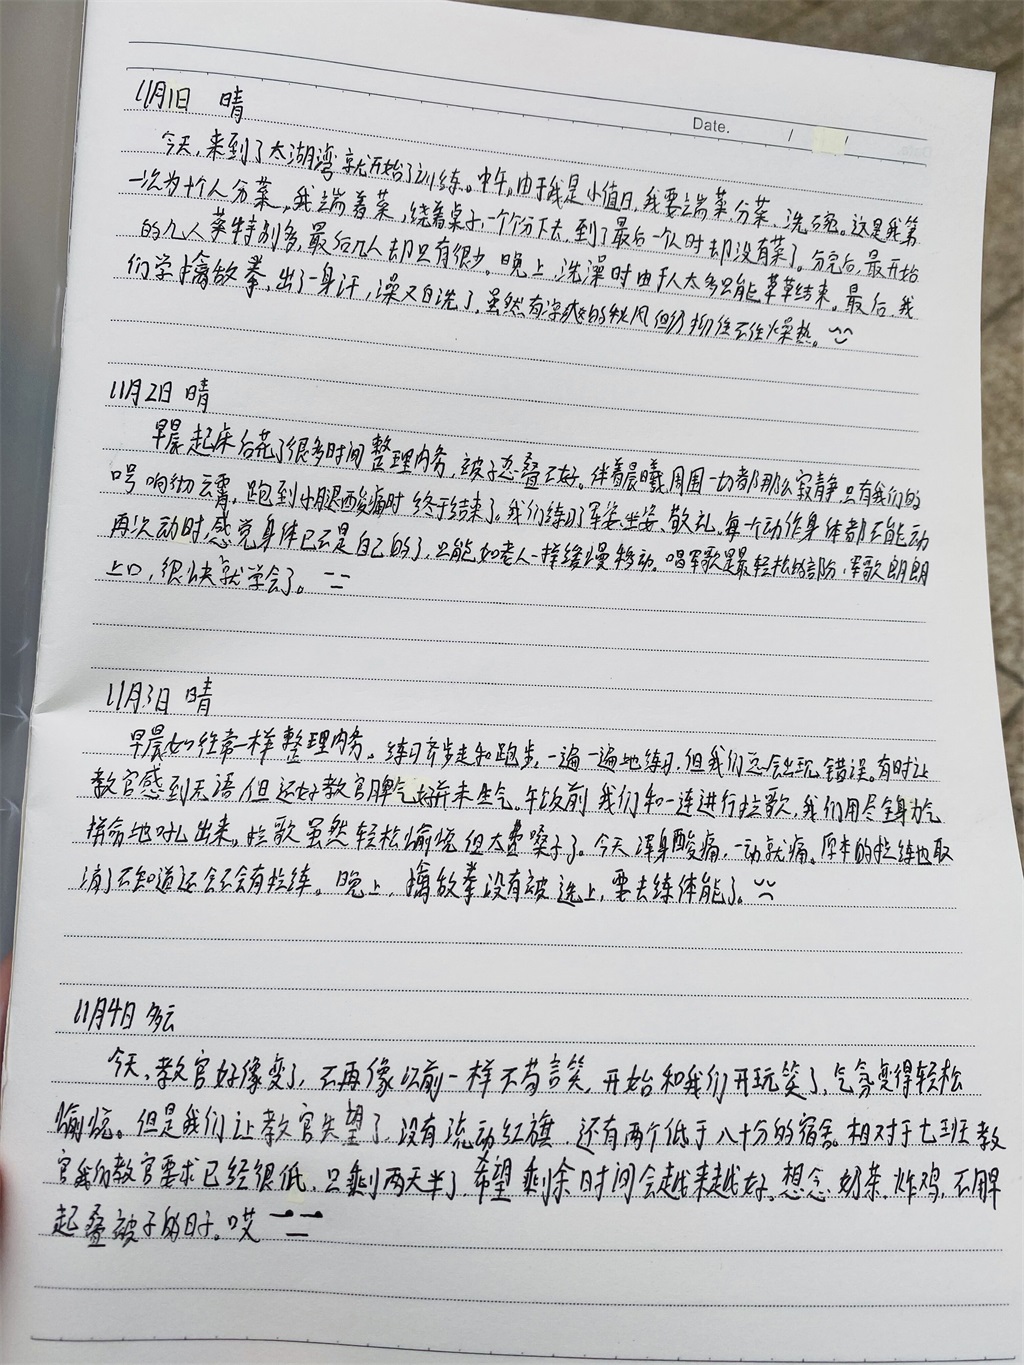 Date. / /
11月1日 晴
今天,来到了太湖湾就开始了训练。中午,由于我是小值日,我要端菜、分菜、洗碗。这是我第
一次为十个人分菜。我端着菜,绕着桌子,一个个分下去,到了最后一个人时却没有菜了。分完后,最开始
的几人菜特别多,最后几人却只有很少。晚上,洗澡时由于人太多只能草草结束。最后,我
们学擒敌拳,出了一身汗,澡又白洗了。虽然有凉爽的秋风但仍抑住不住燥热。
11月2日 晴
早晨起床后花了很多时间整理内务,被子总叠不好。伴着晨曦,周围一切都那么寂静,只有我们的
口号响彻云霄。跑到小腿酸痛时终于结束了。我们练习了军姿、坐姿、敬礼。每个动作身体都不能动
再次动时,感觉身体已不是自己的了,只能如老人一样缓慢移动。唱军歌是最轻松的部分,军歌朗朗
上口,很快就学会了。
11月3日 晴
早晨如往常一样整理内务。练习齐步走和跑步,一遍一遍地练习,但我们总会出现错误。有时让
教官感到无语,但还好教官脾气好并未生气。午饭前,我们和一连进行拉歌,我们用尽全身力气
拼命地吼出来。拉歌虽然轻松愉悦但太费嗓子了。今天浑身酸痛,一动就痛。原本的拉练也取
消了不知道还会不会有拉练。晚上,擒敌拳没有被选上,要去练体能了。
11月4日 多云
今天,教官好像变了,不再像以前一样不苟言笑,开始和我们开玩笑了,气氛变得轻松
愉悦。但是我们让教官失望了,没有流动红旗,还有两个低于八十分的宿舍。相对于七班教
官我们教官要求已经很低,只剩两天半了,希望剩余时间会越来越好。想念奶茶、炸鸡,不用早
起叠被子的日子。哎